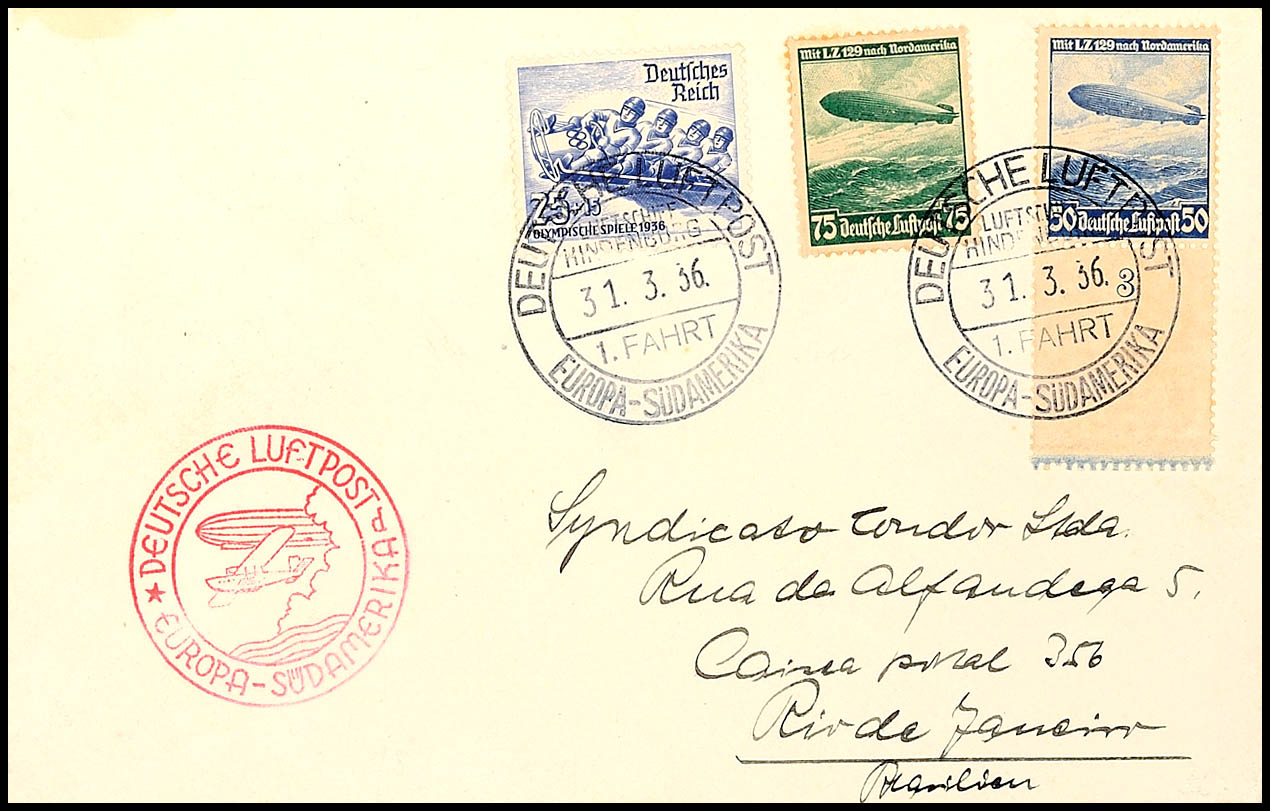 Deutsches
Reich
25+15
OLYMPISCHE SPIELE 1936
Mit LZ 129 nach Nordamerika
75 Deutsche Luftpost 75
Mit LZ 129 nach Nordamerika
50 Deutsche Luftpost 50
3
DEUTSCHE LUFTPOST
LUFTSCHIFF
HINDENBURG
31. 3. 36.
1. FAHRT
EUROPA-SÜDAMERIKA
DEUTSCHE LUFTPOST
LUFTSCHIFF
HINDENBURG
31. 3. 36.
1. FAHRT
EUROPA-SÜDAMERIKA
DEUTSCHE LUFTPOST
EUROPA-SÜDAMERIKA
Syndicato Condor Ltda.
Rua da Alfandega 5,
Caixa postal 356
Rio de Janeiro
Brasilien